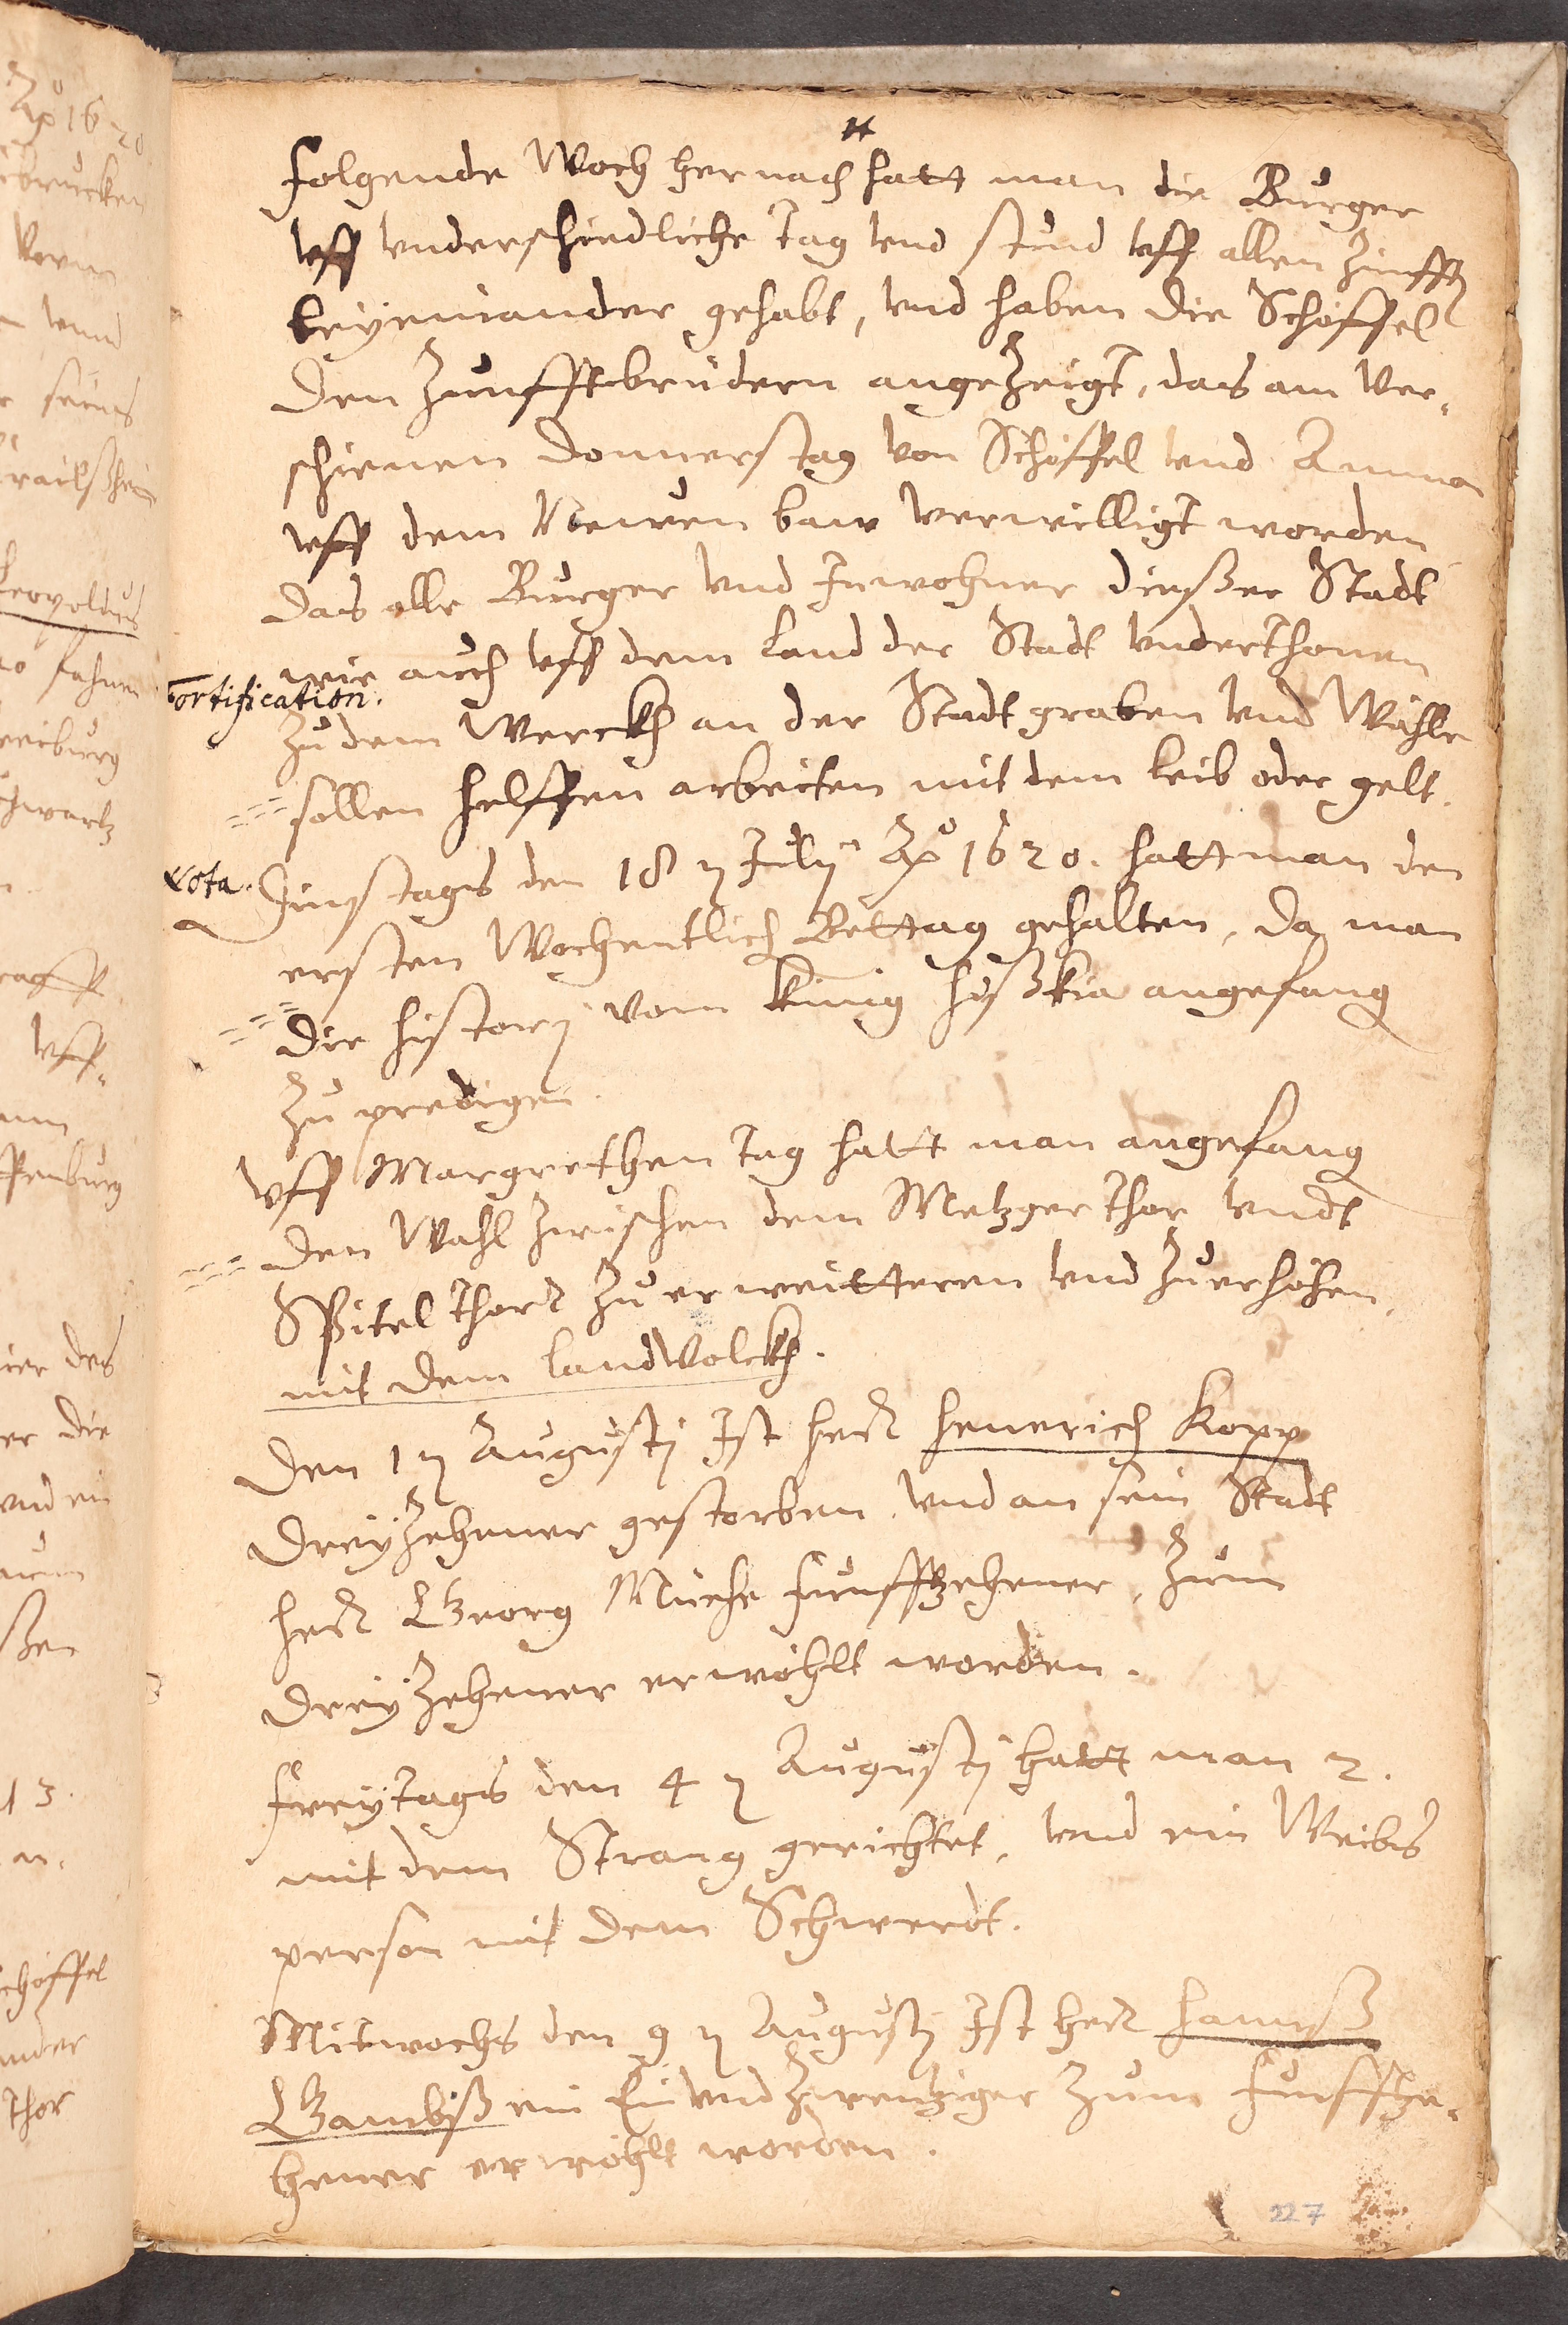 folgende Woch hernach hatt man die Burger
vff vnderschiedliche Tag vnd stund vff allen Zünfften
beyeinander gehabt, vnd haben die Schöffel
den Zunfftbrüdern angezeigt, das am ver-
schienen Donnerstag von Schöffel vnd Amman
vff dem Newen baw verwilligt worden
das alle Burger vnd Inwohner dießer Stadt
wie auch vff dem Land der Stadt vnderthonen
Fortification.
zu dem Werckh an der Stadtgraben vnd Wähle
sollen helffen arbeiten mit dem leib oder gelt.
Nota. Zinstags den 18 July Ao 1620. hatt man den
ersten Wochentlich Bettag gehalten, da man
die history vom König Hißkia angefang
zu predigen.
vff Margrethen Tag hatt man angefang
den Wahl zwischen dem Metzgerthor vndt
Spitelthor zu erweitteren vnd zu erhöhen,
mit dem landvolckh.
Den 1 Augusty Ist herr Henerich Kopp
dreyzehener gestorben vnd an sein Stadt
herr Georg Müehe funffzehener, zum
dreyzehener erwöhlt worden.
freytags den 4 Augusty hatt man 2.
mit dem Strang gerichtet, vnd ein Weibs
person mit dem Schwerdt.
Mitwochs den 9 Augusty Ist herr Hannß
Gambß ein Ein vnd zwentziger zum funffze-
hener erwöhlt worden.
227